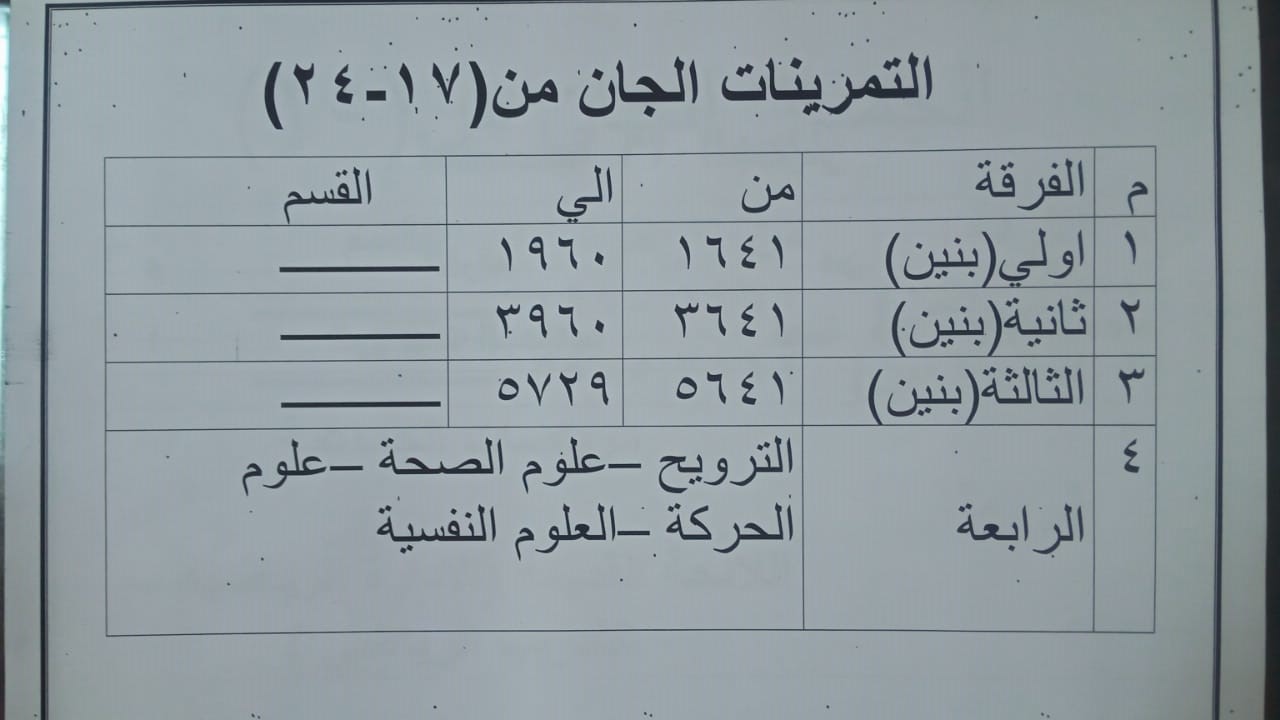 التمرينات الجان من(١٧-٢٤)
م الفرقة من الي القسم
١ اولي(بنين) ١٦٤١ ١٩٦٠
٢ ثانية(بنين) ٣٦٤١ ٣٩٦٠
٣ الثالثة(بنين) ٥٦٤١ ٥٧٢٩
٤ الرابعة الترويح –علوم الصحة –علوم
الحركة –العلوم النفسية